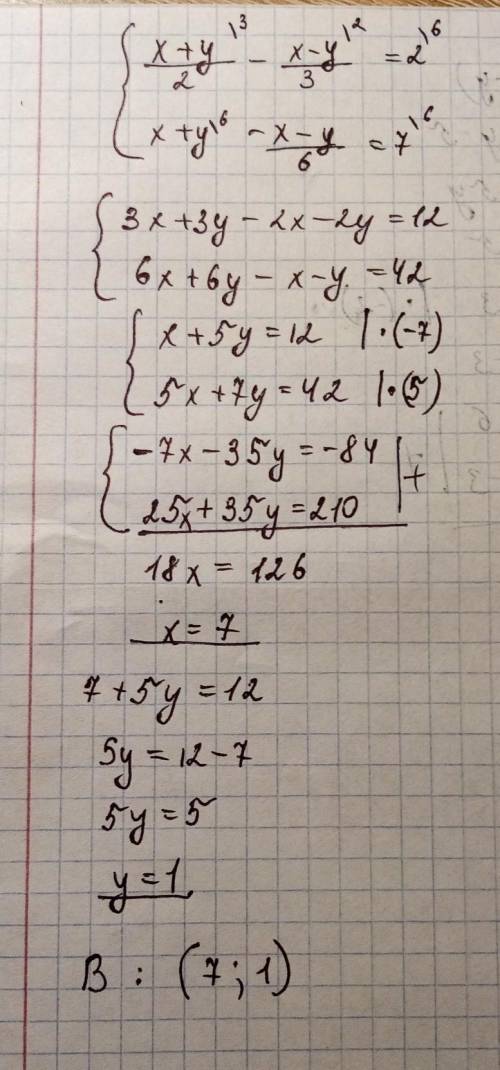 x+y\3 / 2 - x-y\2 / 3 = 2\6
x+y\6 - x-y / 6 = 7\6
3x+3y-2x-2y=12
6x+6y-x-y=42
x+5y=12 | ·(-7)
5x+7y=42 | ·(5)
-7x-35y=-84 | +
25x+35y=210
18x = 126
x = 7
7+5y=12
5y=12-7
5y=5
y=1
В : (7; 1)